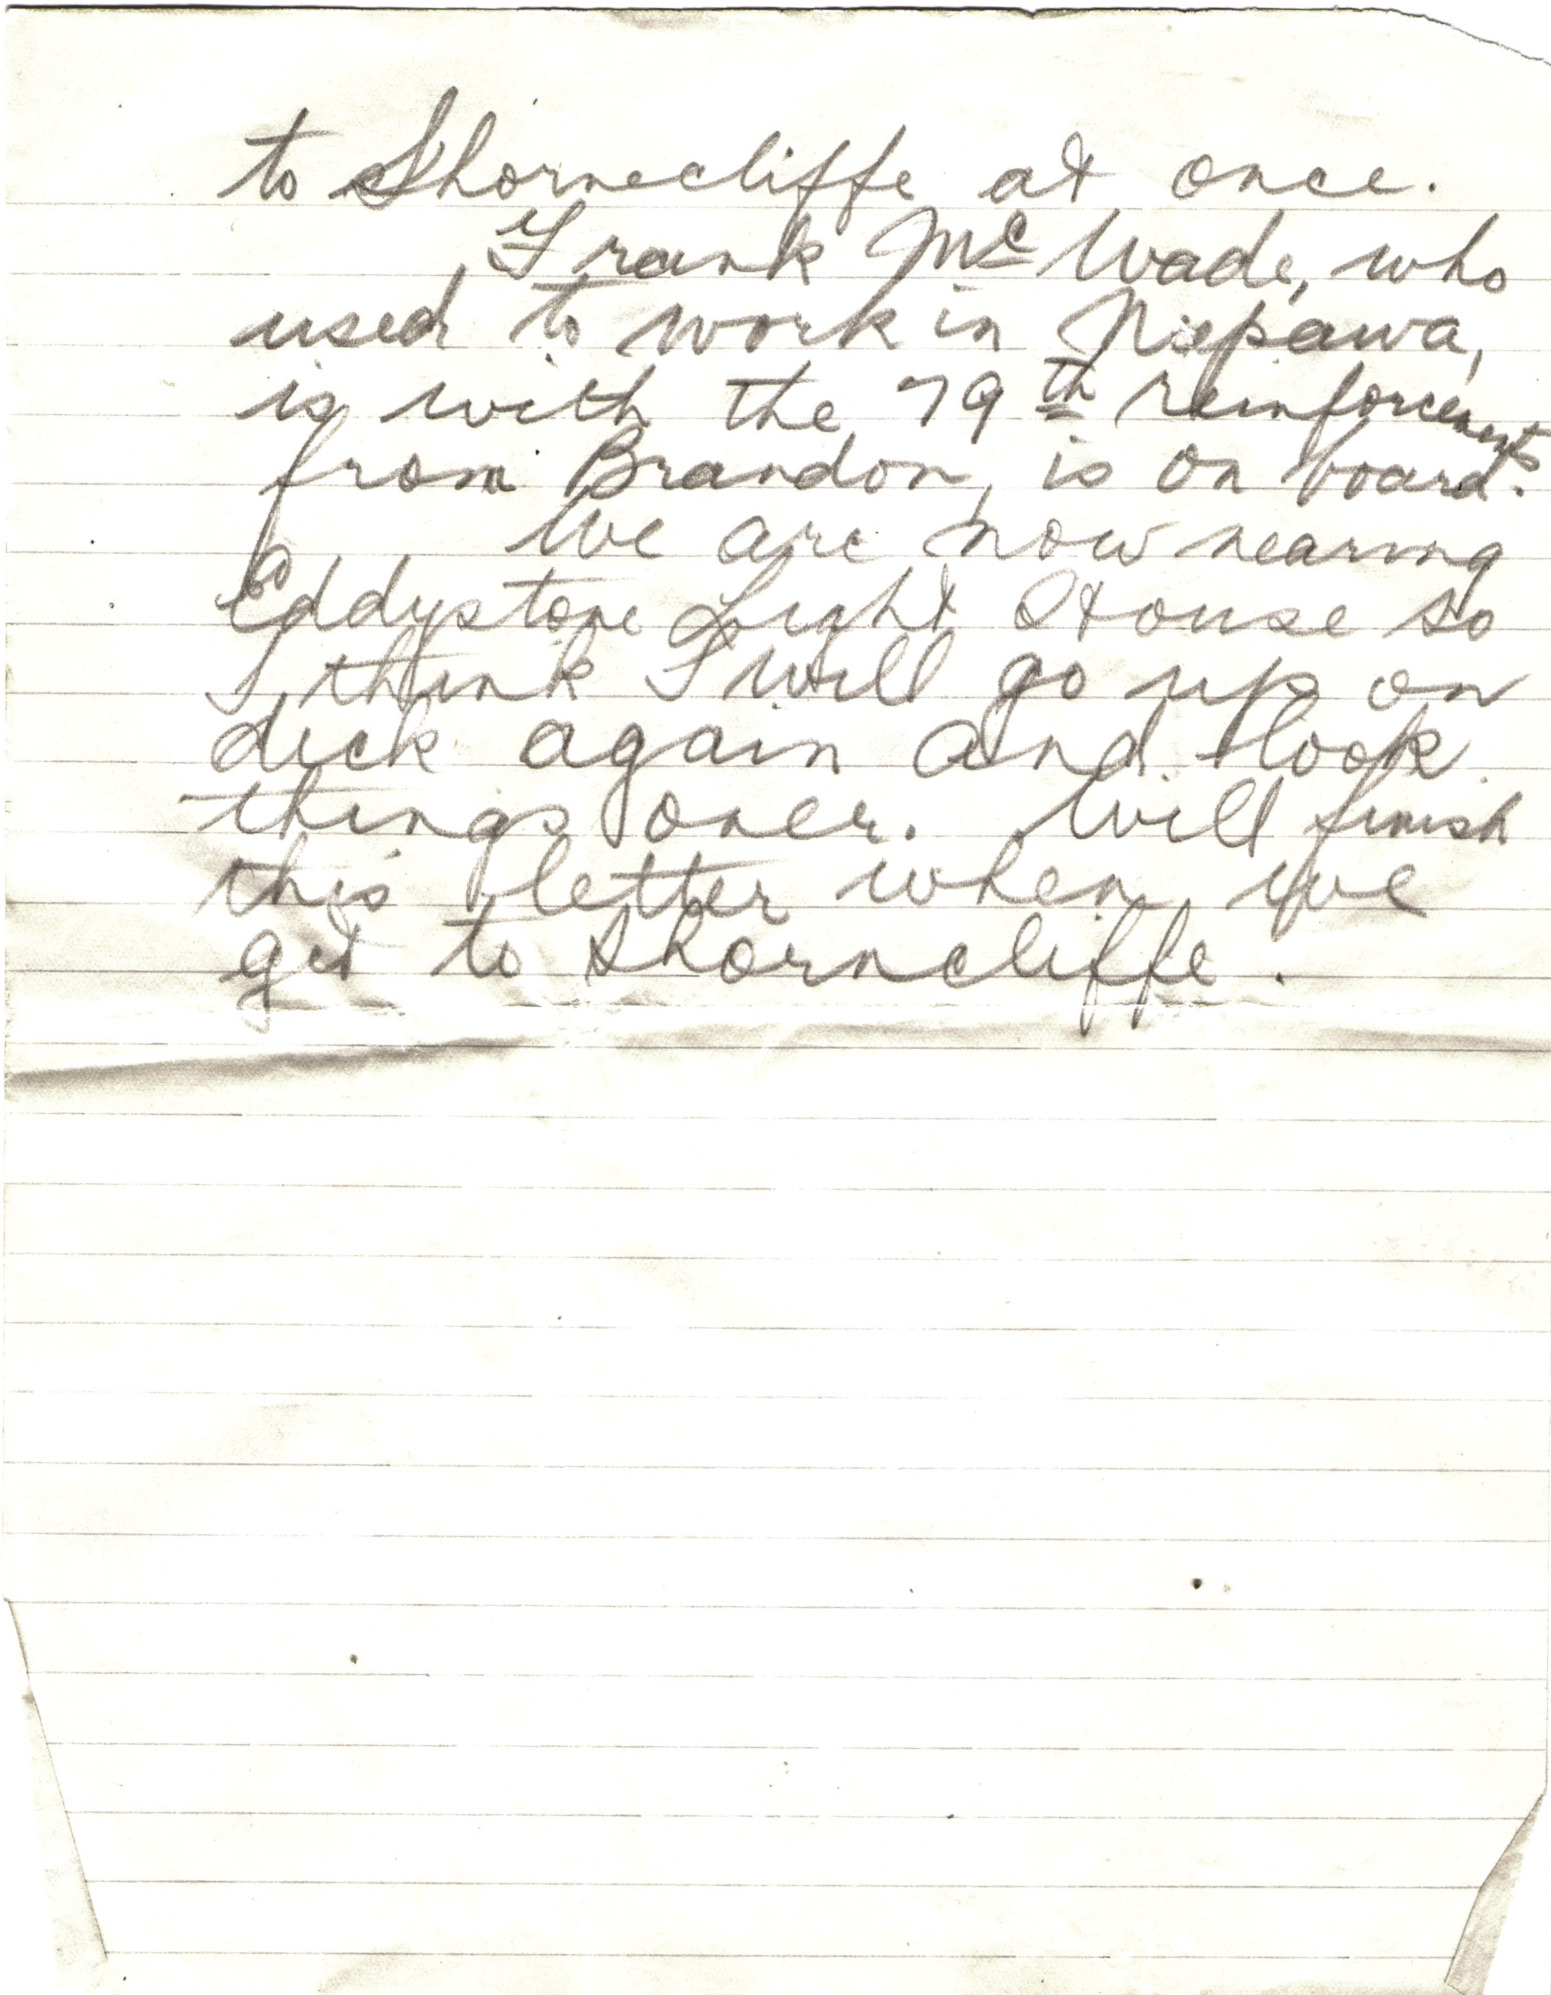 to Shornecliffe at once.
Frank Mc Wade, who
used to work in Niepawa,
is with the 79th reinforcements
from Brandon, is on board.
We are now nearing
Eddystone Light House so
I think I will go up on
deck again and look
things over. Will finish
this letter when we
get to Shorncliffe.